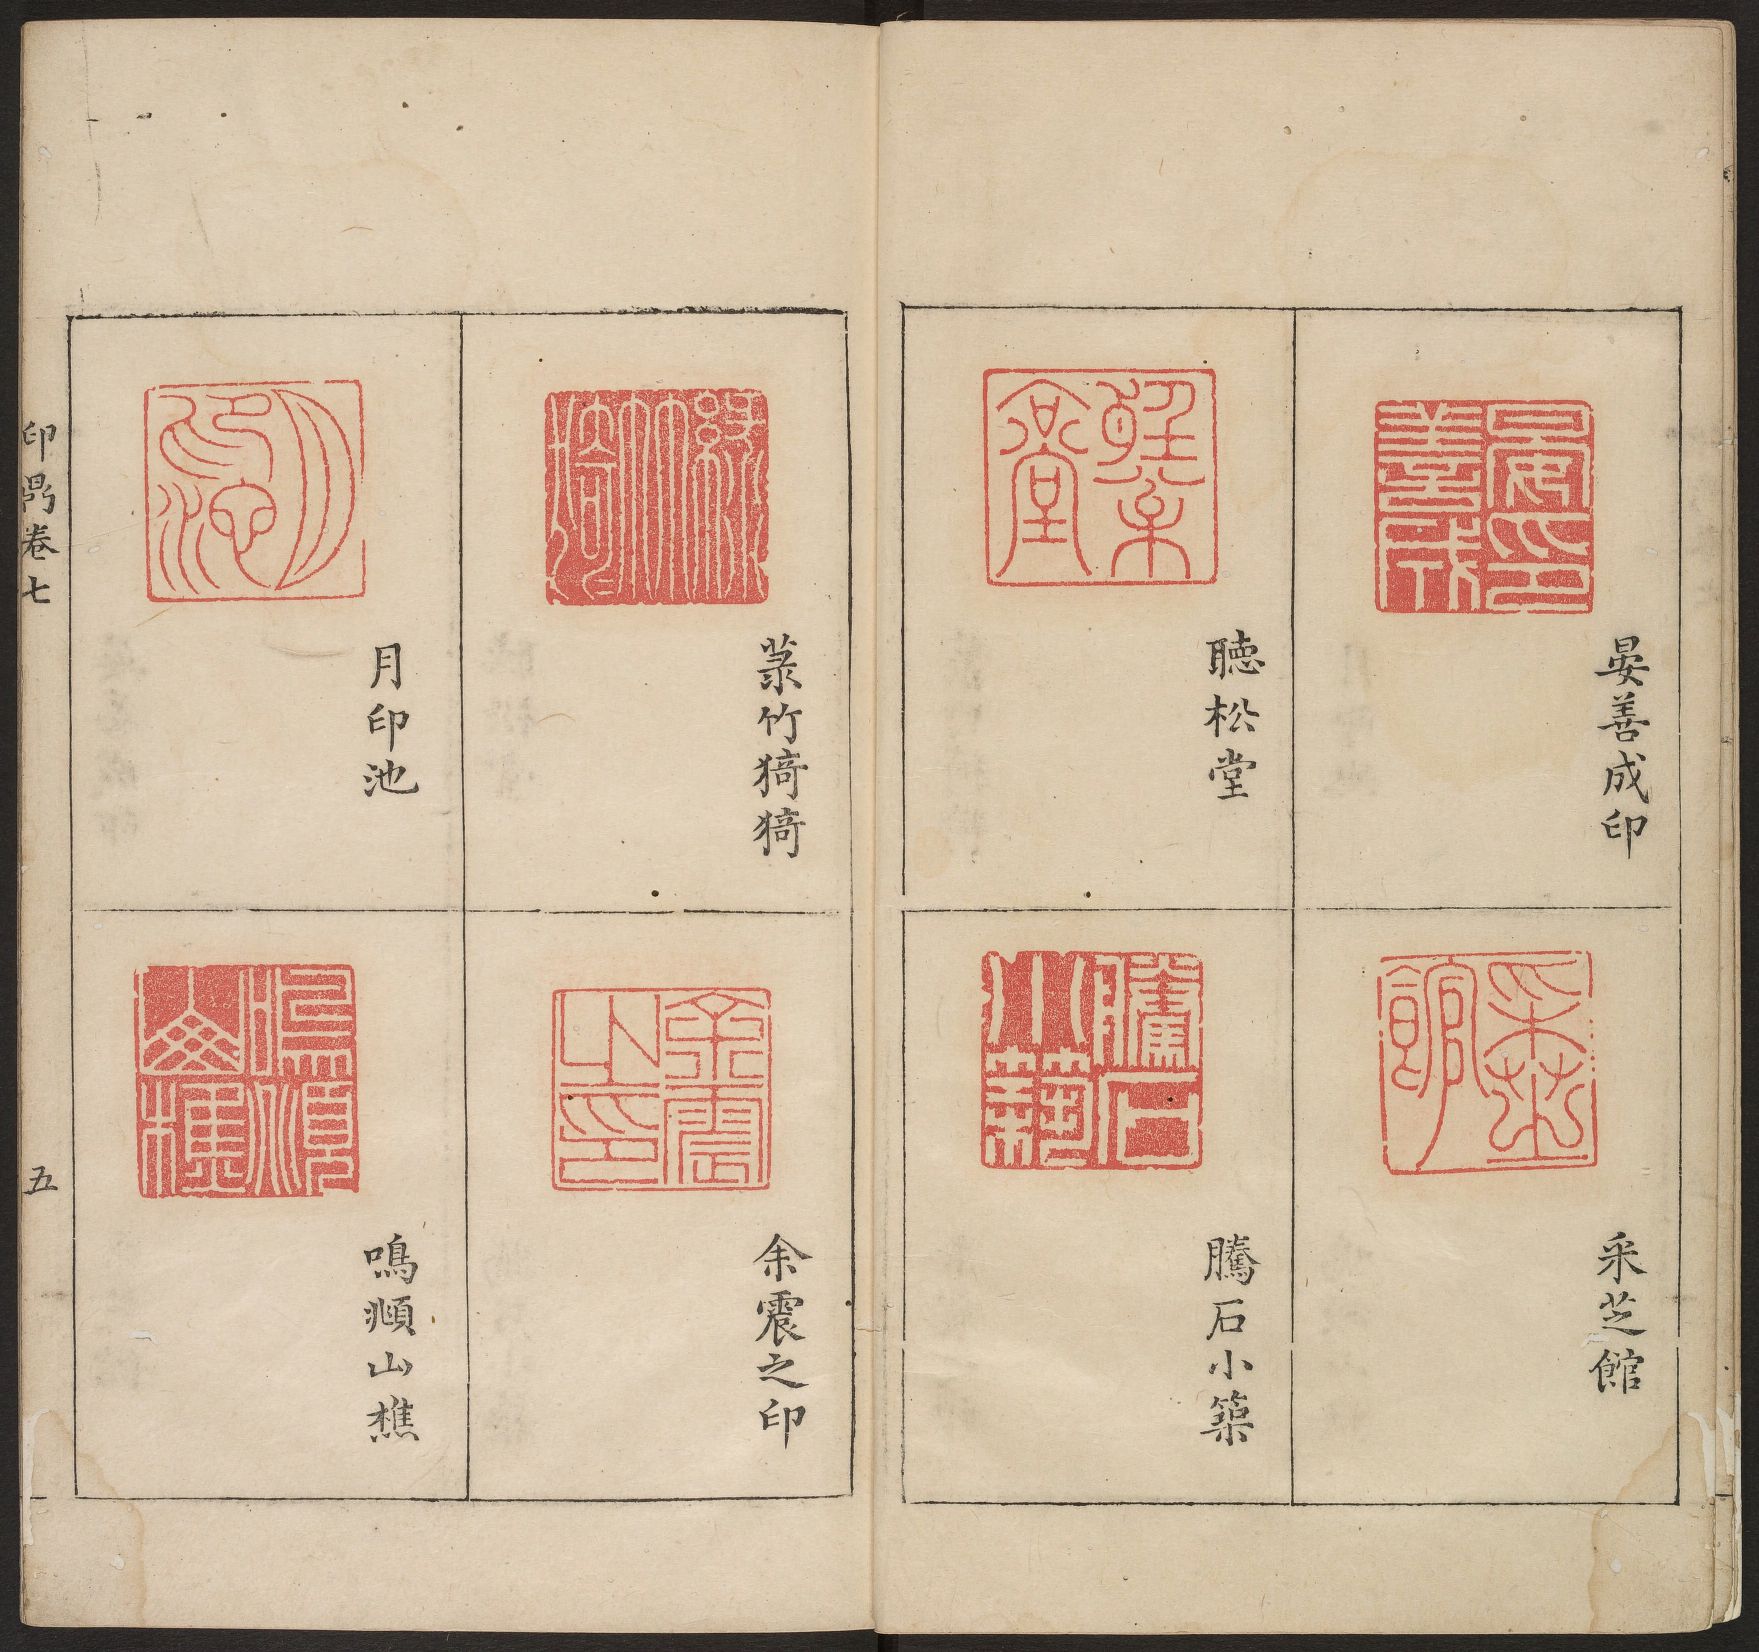 晏善成印
采芝館
聽松堂
騰石小築
菉竹猗猗
余震之印
月印池
鳴頫山樵
卷七
五